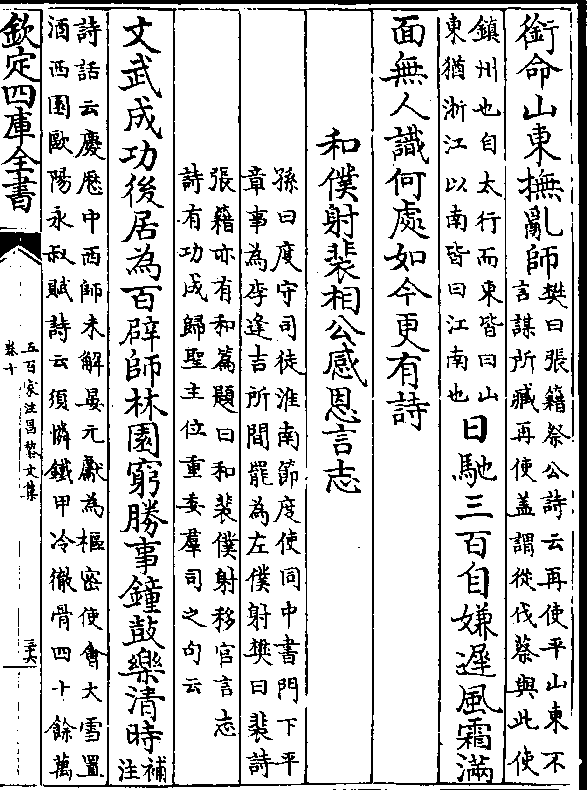 銜命山東撫亂師樊曰張籍祭公詩云再使平山東不
言謀所臧再使盖謂從伐蔡與此使
鎮州也自太行而東皆曰山
東猶浙江以南皆曰江南也日馳三百自嫌遲風霜滿
面無人識何處如今更有詩
和僕射裴相公感恩言志
孫曰度守司徒淮南節度使同中書門下平
章事為李逢吉所間罷為左僕射樊曰裴詩
張籍亦有和篇題曰和裴僕射移官言志
詩有功成歸聖主位重委羣司之句云
文武成功後居為百辟師林園窮勝事鐘鼓樂清時補
注
詩話云慶厯中西師未解晏元獻為樞密使會大雪置
酒西園歐陽永叔賦詩云須憐鐵甲冷徹骨四十餘萬
欽定四庫全書
五百家注昌黎文集
卷十
三十六